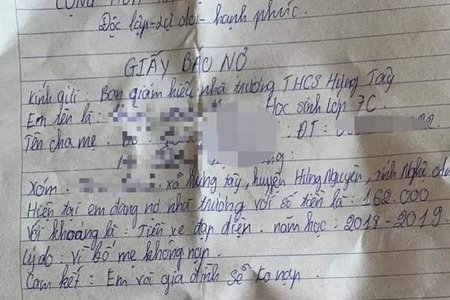 Độc lập - tự do - hạnh phúc.
GIẤY BÁO NỢ
Kính gửi : Ban giám hiệu nhà trường THCS Hưng Tây
Em tên là : Học sinh lớp 7C
Tên cha mẹ : ĐT :
Xóm : xã Hưng Tây, huyện Hưng Nguyên, tỉnh Nghệ
Hiện tại em đang nợ nhà trường với số tiền là : 162.000
Với khoảng là : Tiền xe đạp điện. năm học : 2018-2019
Lý do : vì bố mẹ không nạp.
Cam kết : Em và gia đình sẽ nạp